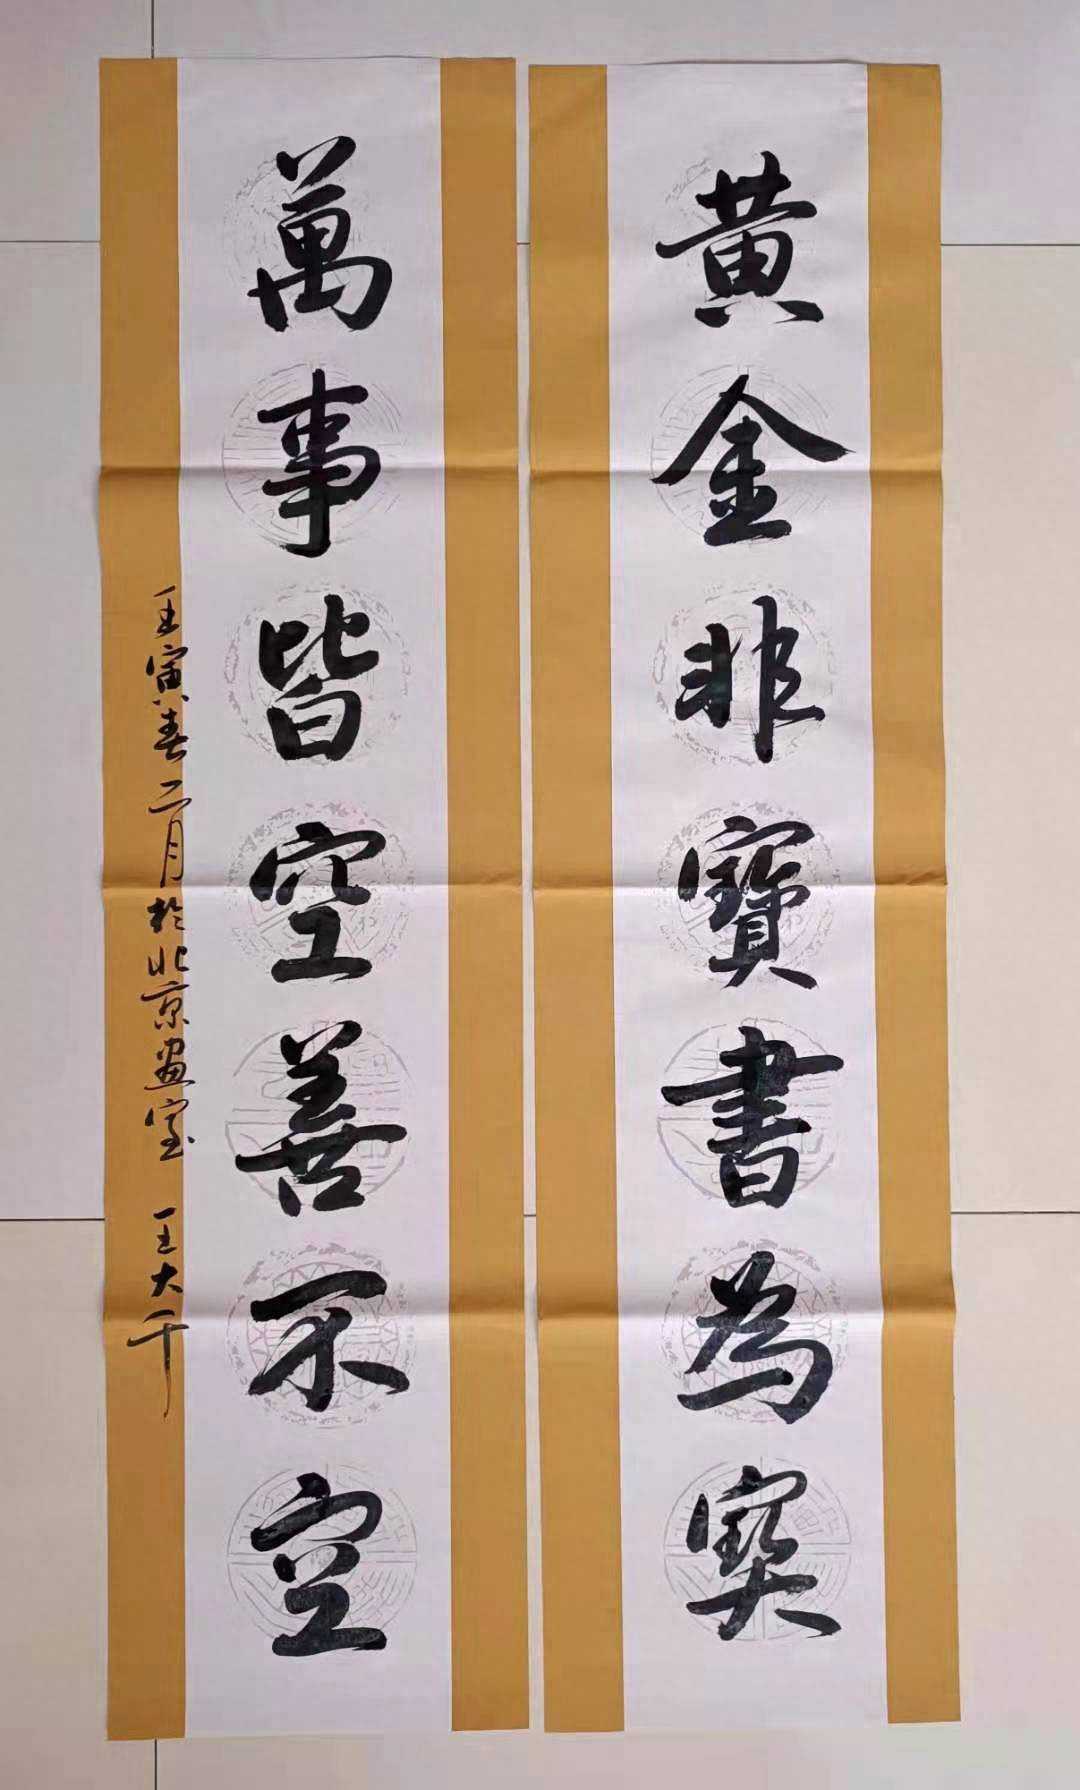 黄金非寶書為寶
萬事皆空善不空
壬寅春二月於北京畫室 王大千